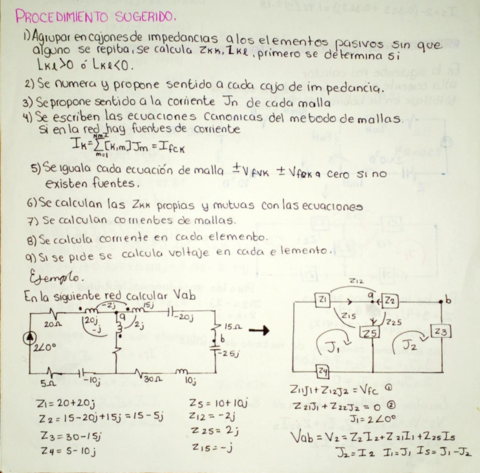 PROCEDIMIENTO SUGERIDO.
1) Agrupar en cajones de impedancias a los elementos pasivos sin que
alguno se repita, se calcula Zkk, Zkl, primero se determina si
Lkl>0 ó Lkl<0.
2) Se numera y propone sentido a cada cajo de impedancia.
3) Se propone sentido a la corriente Jn de cada malla
4) Se escriben las ecuaciones canonicas del metodo de mallas.
Si en la red hay fuentes de corriente
Ik=Σ[k,m]Jm=Ifck
m=1
5) Se iguala cada ecuación de malla ±Vfvk ± a cero si no
existen fuentes.
6) Se calculan las Zkk propias y mutuas con las ecuaciones
7) Se calculan corrientes de mallas.
8) Se calcula corriente en cada elemento.
9) Si se pide se calcula voltaje en cada elemento.
Ejemplo.
En la siguiente red calcular Vab
-2j 15j
20Ω 20j -j a 2j -20j
15Ω
b
-25j
2∠0°
5Ω -10j 30Ω 10j
Z12
Z1 a Z2 b
Z15 Z25
Z5 Z3
J1 J2
Z4
Z1=20+20j
Z2=15-20j+15j=15-5j
Z3=30-15j
Z4=5-10j
Z5=10+10j
Z12=-2j
Z25=2j
Z15=-j
Z11J1+Z12J2=Vfc ①
Z21J1+Z22J2=0 ②
J1=2∠0°
Vab=V2=Z2I2+Z21I1+Z25I5
J2=I2 I1=J1 I5=J1-J2